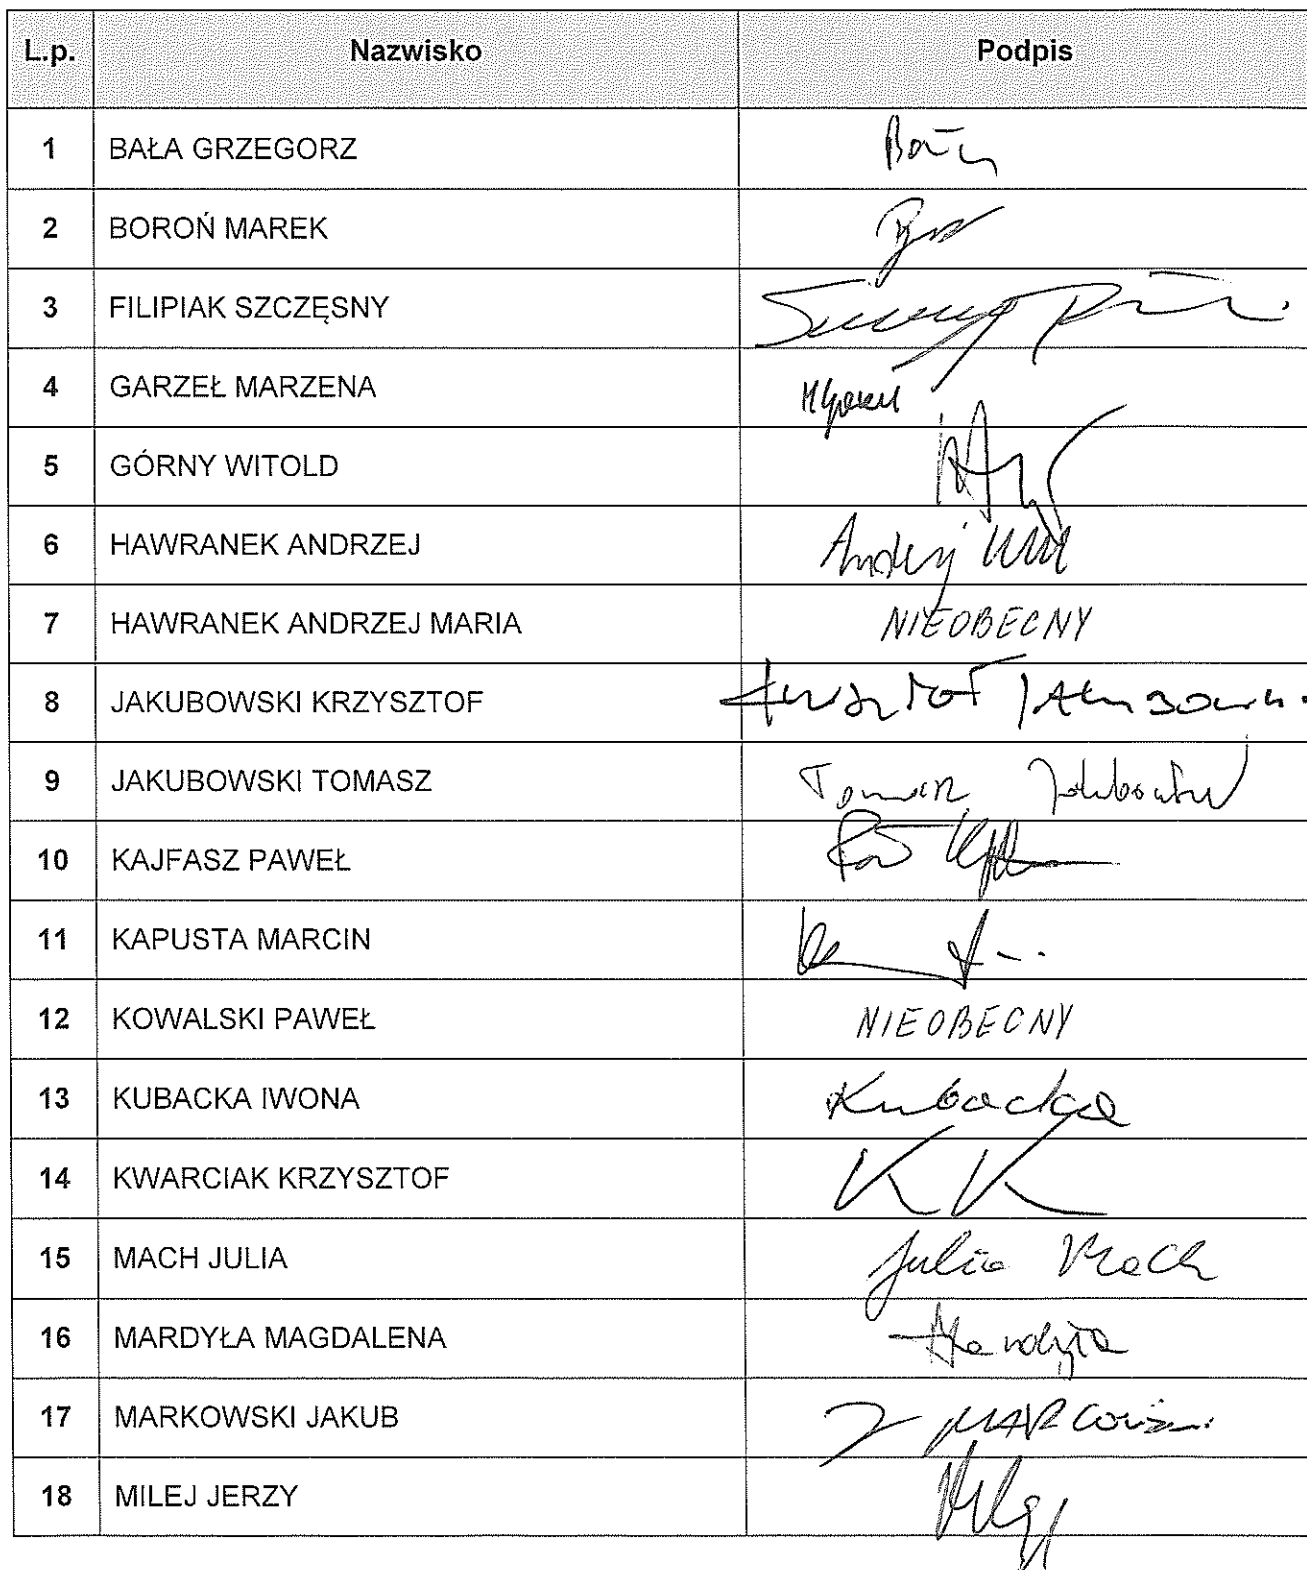 L.p. Nazwisko Podpis
1 BAŁA GRZEGORZ
2 BOROŃ MAREK
3 FILIPIAK SZCZĘSNY
4 GARZEŁ MARZENA
5 GÓRNY WITOLD
6 HAWRANEK ANDRZEJ Andrzej
7 HAWRANEK ANDRZEJ MARIA NIEOBECNY
8 JAKUBOWSKI KRZYSZTOF
9 JAKUBOWSKI TOMASZ Tomasz Jakubowski
10 KAJFASZ PAWEŁ
11 KAPUSTA MARCIN
12 KOWALSKI PAWEŁ NIEOBECNY
13 KUBACKA IWONA Kubacka
14 KWARCIAK KRZYSZTOF K K
15 MACH JULIA Julia Mach
16 MARDYŁA MAGDALENA Mardyła
17 MARKOWSKI JAKUB
18 MILEJ JERZY